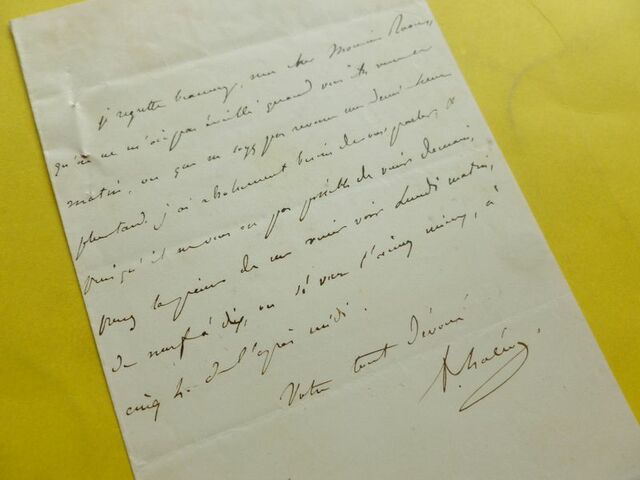 je regrette beaucoup, mon cher Monsieur
qu'on ne m'ait pas éveillé quand vous êtes venu ce
matin, ou que ne soyez pas revenu une demi-heure
plus tard. j'ai absolument besoin de vous parler, &
puisqu'il ne vous est pas possible de venir demain,
prenez la peine de me venir voir Lundi matin,
de neuf à dix, ou si vous l'aimez mieux, à
cinq h. de l'après midi.
Votre tout dévoué